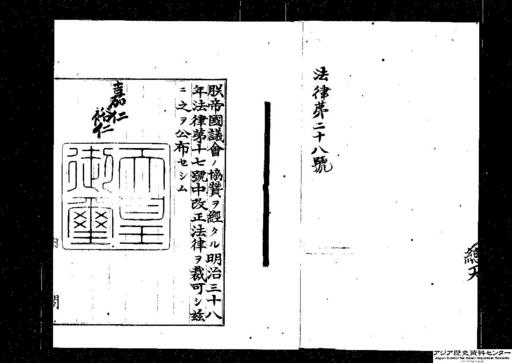 法律第二十八號
朕帝國議會ノ協賛ヲ經タル明治三十八
年法律第十七號中改正法律ヲ裁可シ茲
ニ之ヲ公布セシム
嘉仁
裕仁
天皇
御璽
アジア歴史資料センター
Japan Center for Asian Historical Records